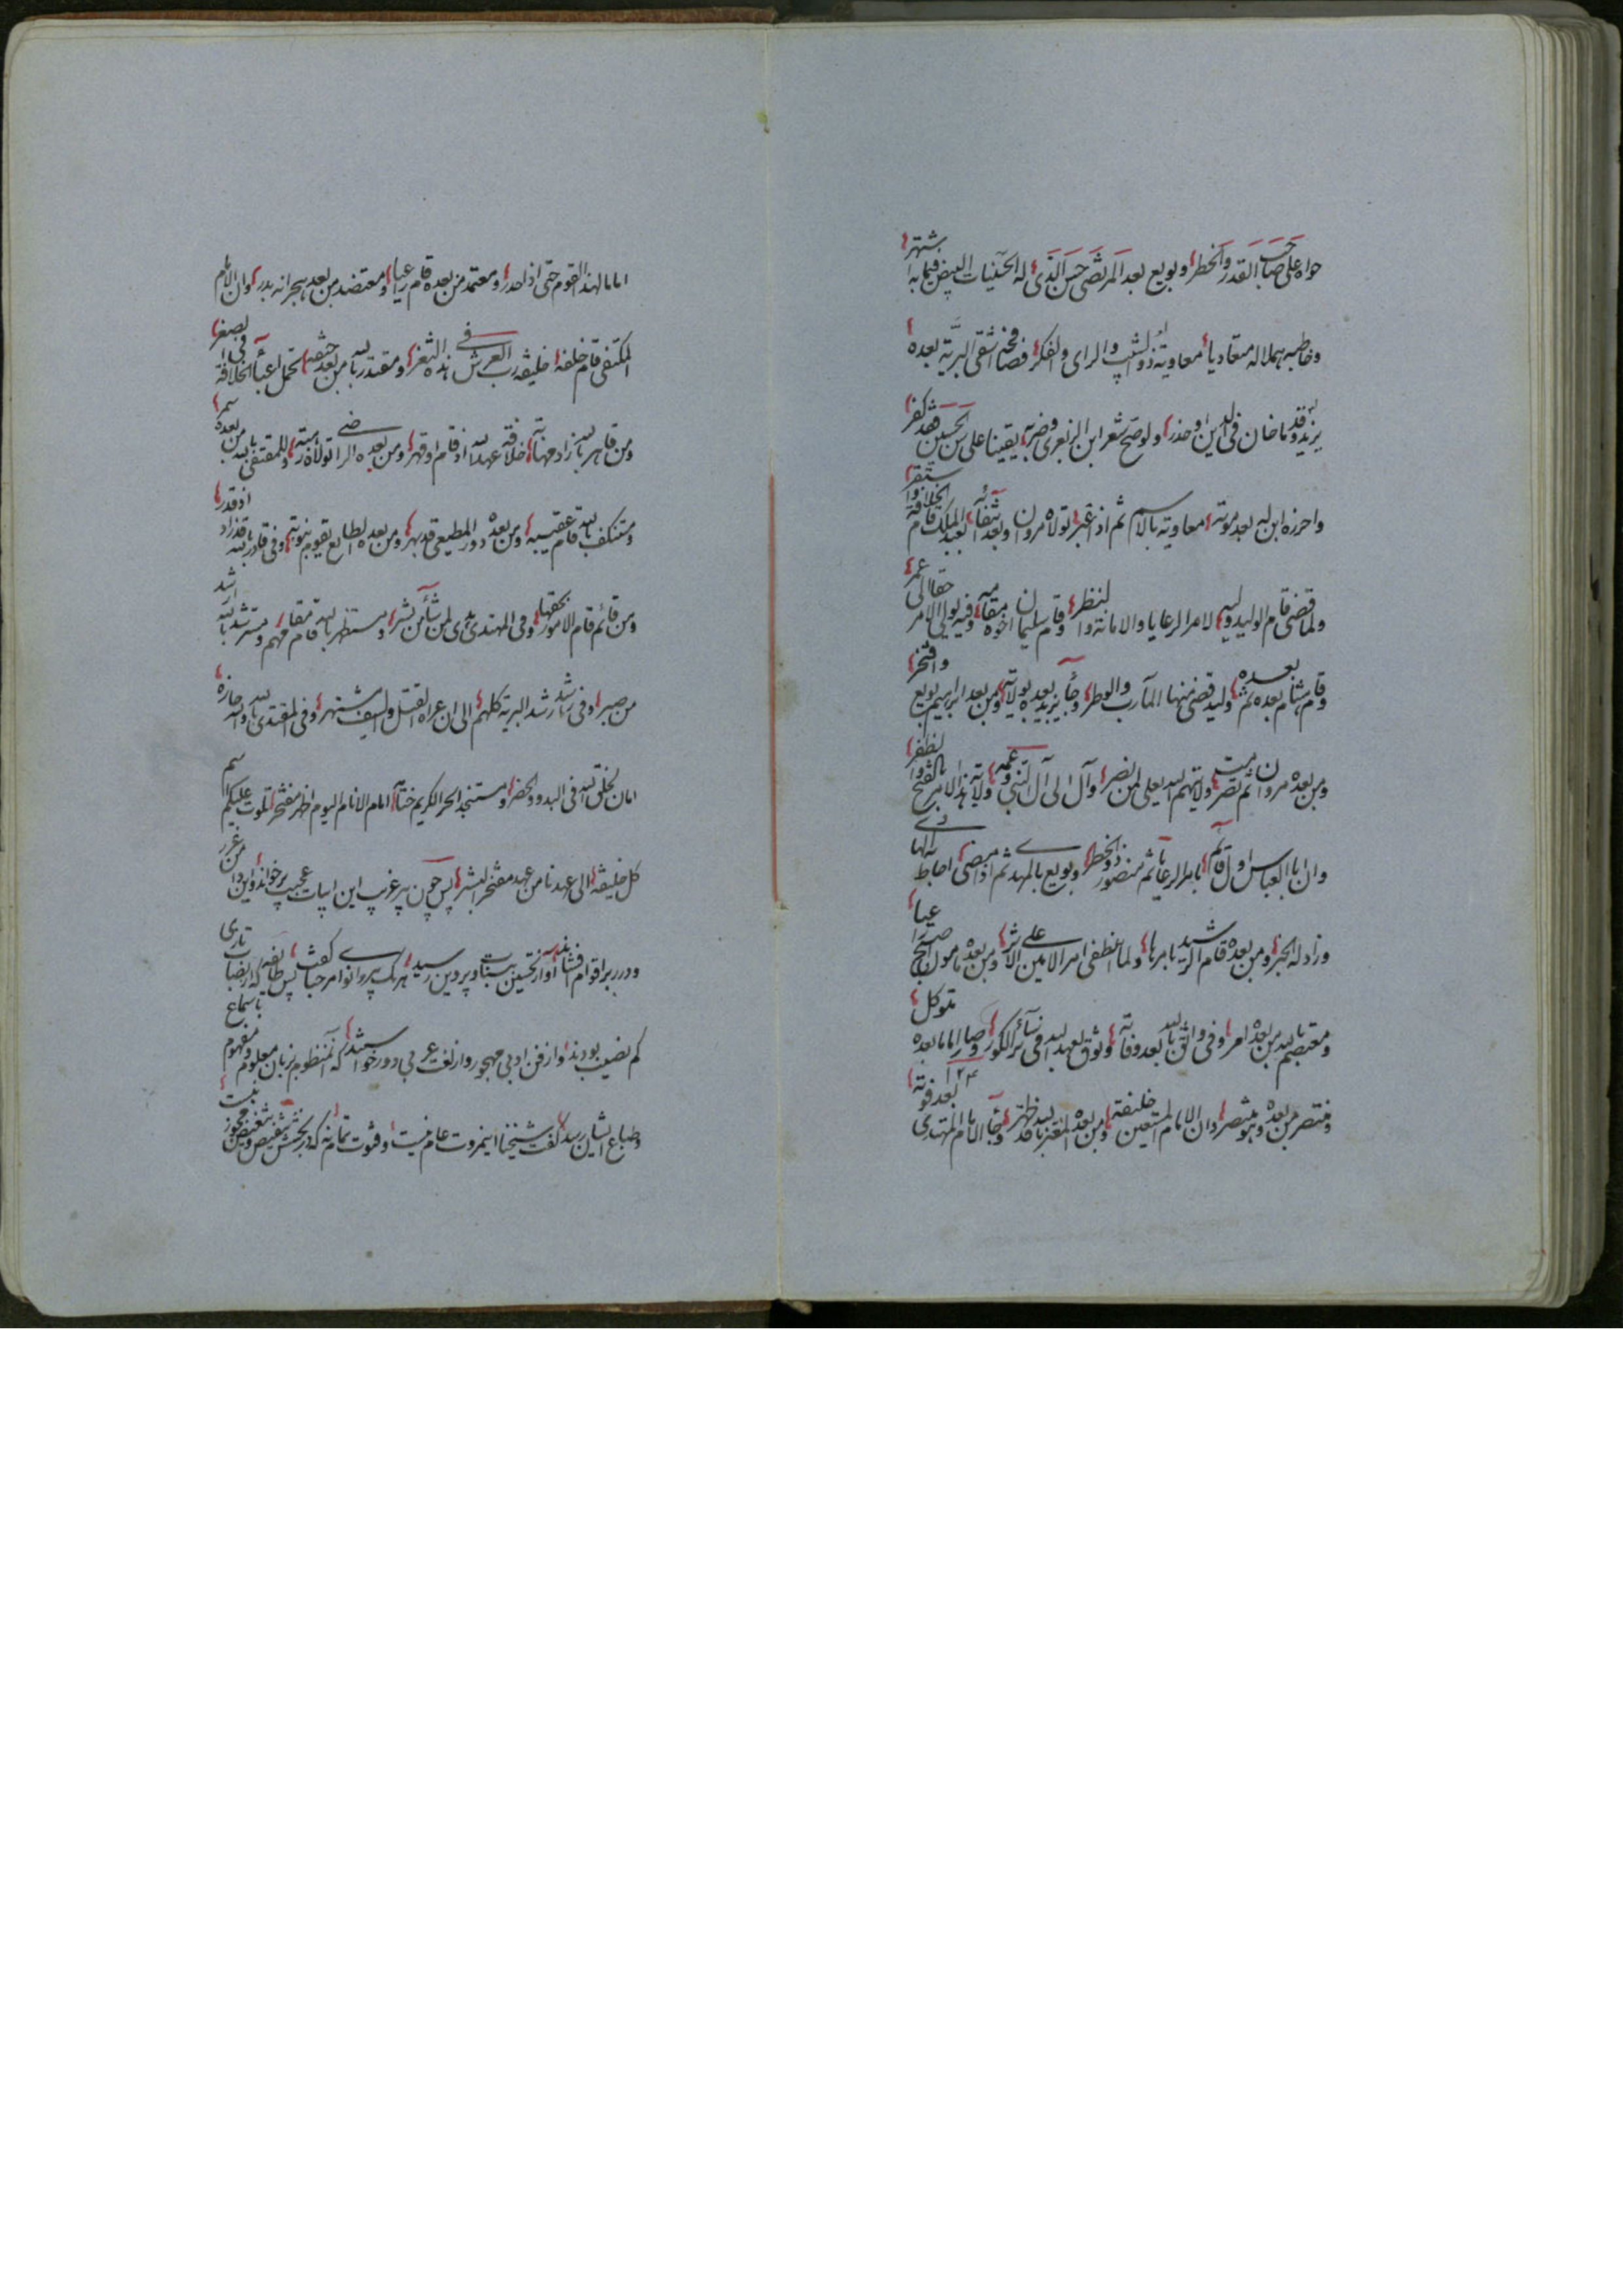 حواه علی صاحب القدر والخطر وبویع بعد المرتضی حسن الذی له الحسنیات البیض فیما به اشتهر
وخاطبه هملاله متعادیا معاویة ذو الشیب والرای والفکر فصافحه اشقی البریة بعده
یزید وقد ما خان فی الدین اوحذر ولو صح شعر ابن الزبعری وضربه یقینا علی سن الحسین فقد کفر
واحرزه ابن له بعد موته معاویة بالاسم ثم اذا غبر تولاه مروان وبعد انتفائه لعبد الملک قام الخلافة واستقر
ولما قضی قام الولید ولیه لامر الرعایا والامانة والنظر وقام سلیمان اخوه مقامه وفیه یولی الامر حقا الی عمر
وقام هشام بعده ثم بعده ولید قضی منها المآرب والوطر وجاء یزید بعده بولایة ومن بعد ابراهیم بویع وافتخر
ومن بعده مروان ثمت نصر ولایتهم الله یعلی لمن نصر وآل الی آل النبی وعمه ولایة هذا الامر بالفتح والظفر
وان ابا العباس اول قائم بامر الرعایا ثم منصور ذو الخطر وبویع بالمهدی ثم اذا مضی احاط به الهادی
وزاد له الخبر ومن بعده قام الرشید بامرها ولما انطفی امر الامین علی الاثر ومن بعده مامون اصبح
ومعتصم بالله من بعده امرا وفی واثق بالله بعد وفاته وثوق لعهد الله فی سائر الکور وصار اماما بعده متوکل
ومنتصر من بعده وهو منتصر وان الامام المستعین خلیفة ومن بعده المعتز بالله قد ظهر وجاء الامام المهتدی بعد فوته
۱۲۴
اماما لهذا القوم حتی اذا حدر ومعتمد من بعده قام راعیا ومعتضد من بعد هجرانه بدر وان الامام
المکتفی قام خلفه خلیفة رب العرش فی هذه الثغر ومقتدر بالله من بعد حتفه تحمل اعباء الخلافة فی الصغر
ومن قاهر بالله زاد مهابة خلافة عهد الله اذ قام او قهر ومن بعده الراضی تولاه مدة وللمقتفی بالله من بعده سمر
ومستکف بالله قام عقیبه ومن بعده دور المطیعی قد بهر ومن بعده الطایع یقوم بنوبة وفی قادر بالله قد زاد اذ قدر
ومن قائم قام الامور بحقها وفی المهتدی هدی لمن شاء من بشر ومستظهر بالله قام مقامهم ومسترشد بالله ارشد
من صبر وفی راشد ارشد البریة کلهم الی ان عراه القتل والسیف مشتهر وفی المقتدی بالله والله حازه
امان لخلق الله فی البدو والحضر ومستنجد الحر الکریم ختامه امام الانام الیوم اظهر مفتخر تلوت علیکم اسم
کل خلیفة الی عهدنا من عهد مفتخر البشر پس چون پیر غریب این ابیات عجیب برخواند و این دو از غرر
ودرر بر اقوام فشاند آواز تحسین ببنات وپروین رسید هر یک پیر را نوا مرحبا گفت پس طایفه که از بضاعت تازی
کم نصیب بودند واز فن ادبی مهجور واز لغت عربی دور خواستند که آن منظوم بزبان معلوم ومفهوم باسماع
وطباع ایشان رسد گفت شیخنا اینمروت عام نیست وفتوت تمام نه که در بخشش تنقیص وتبغیض مجوز نیست